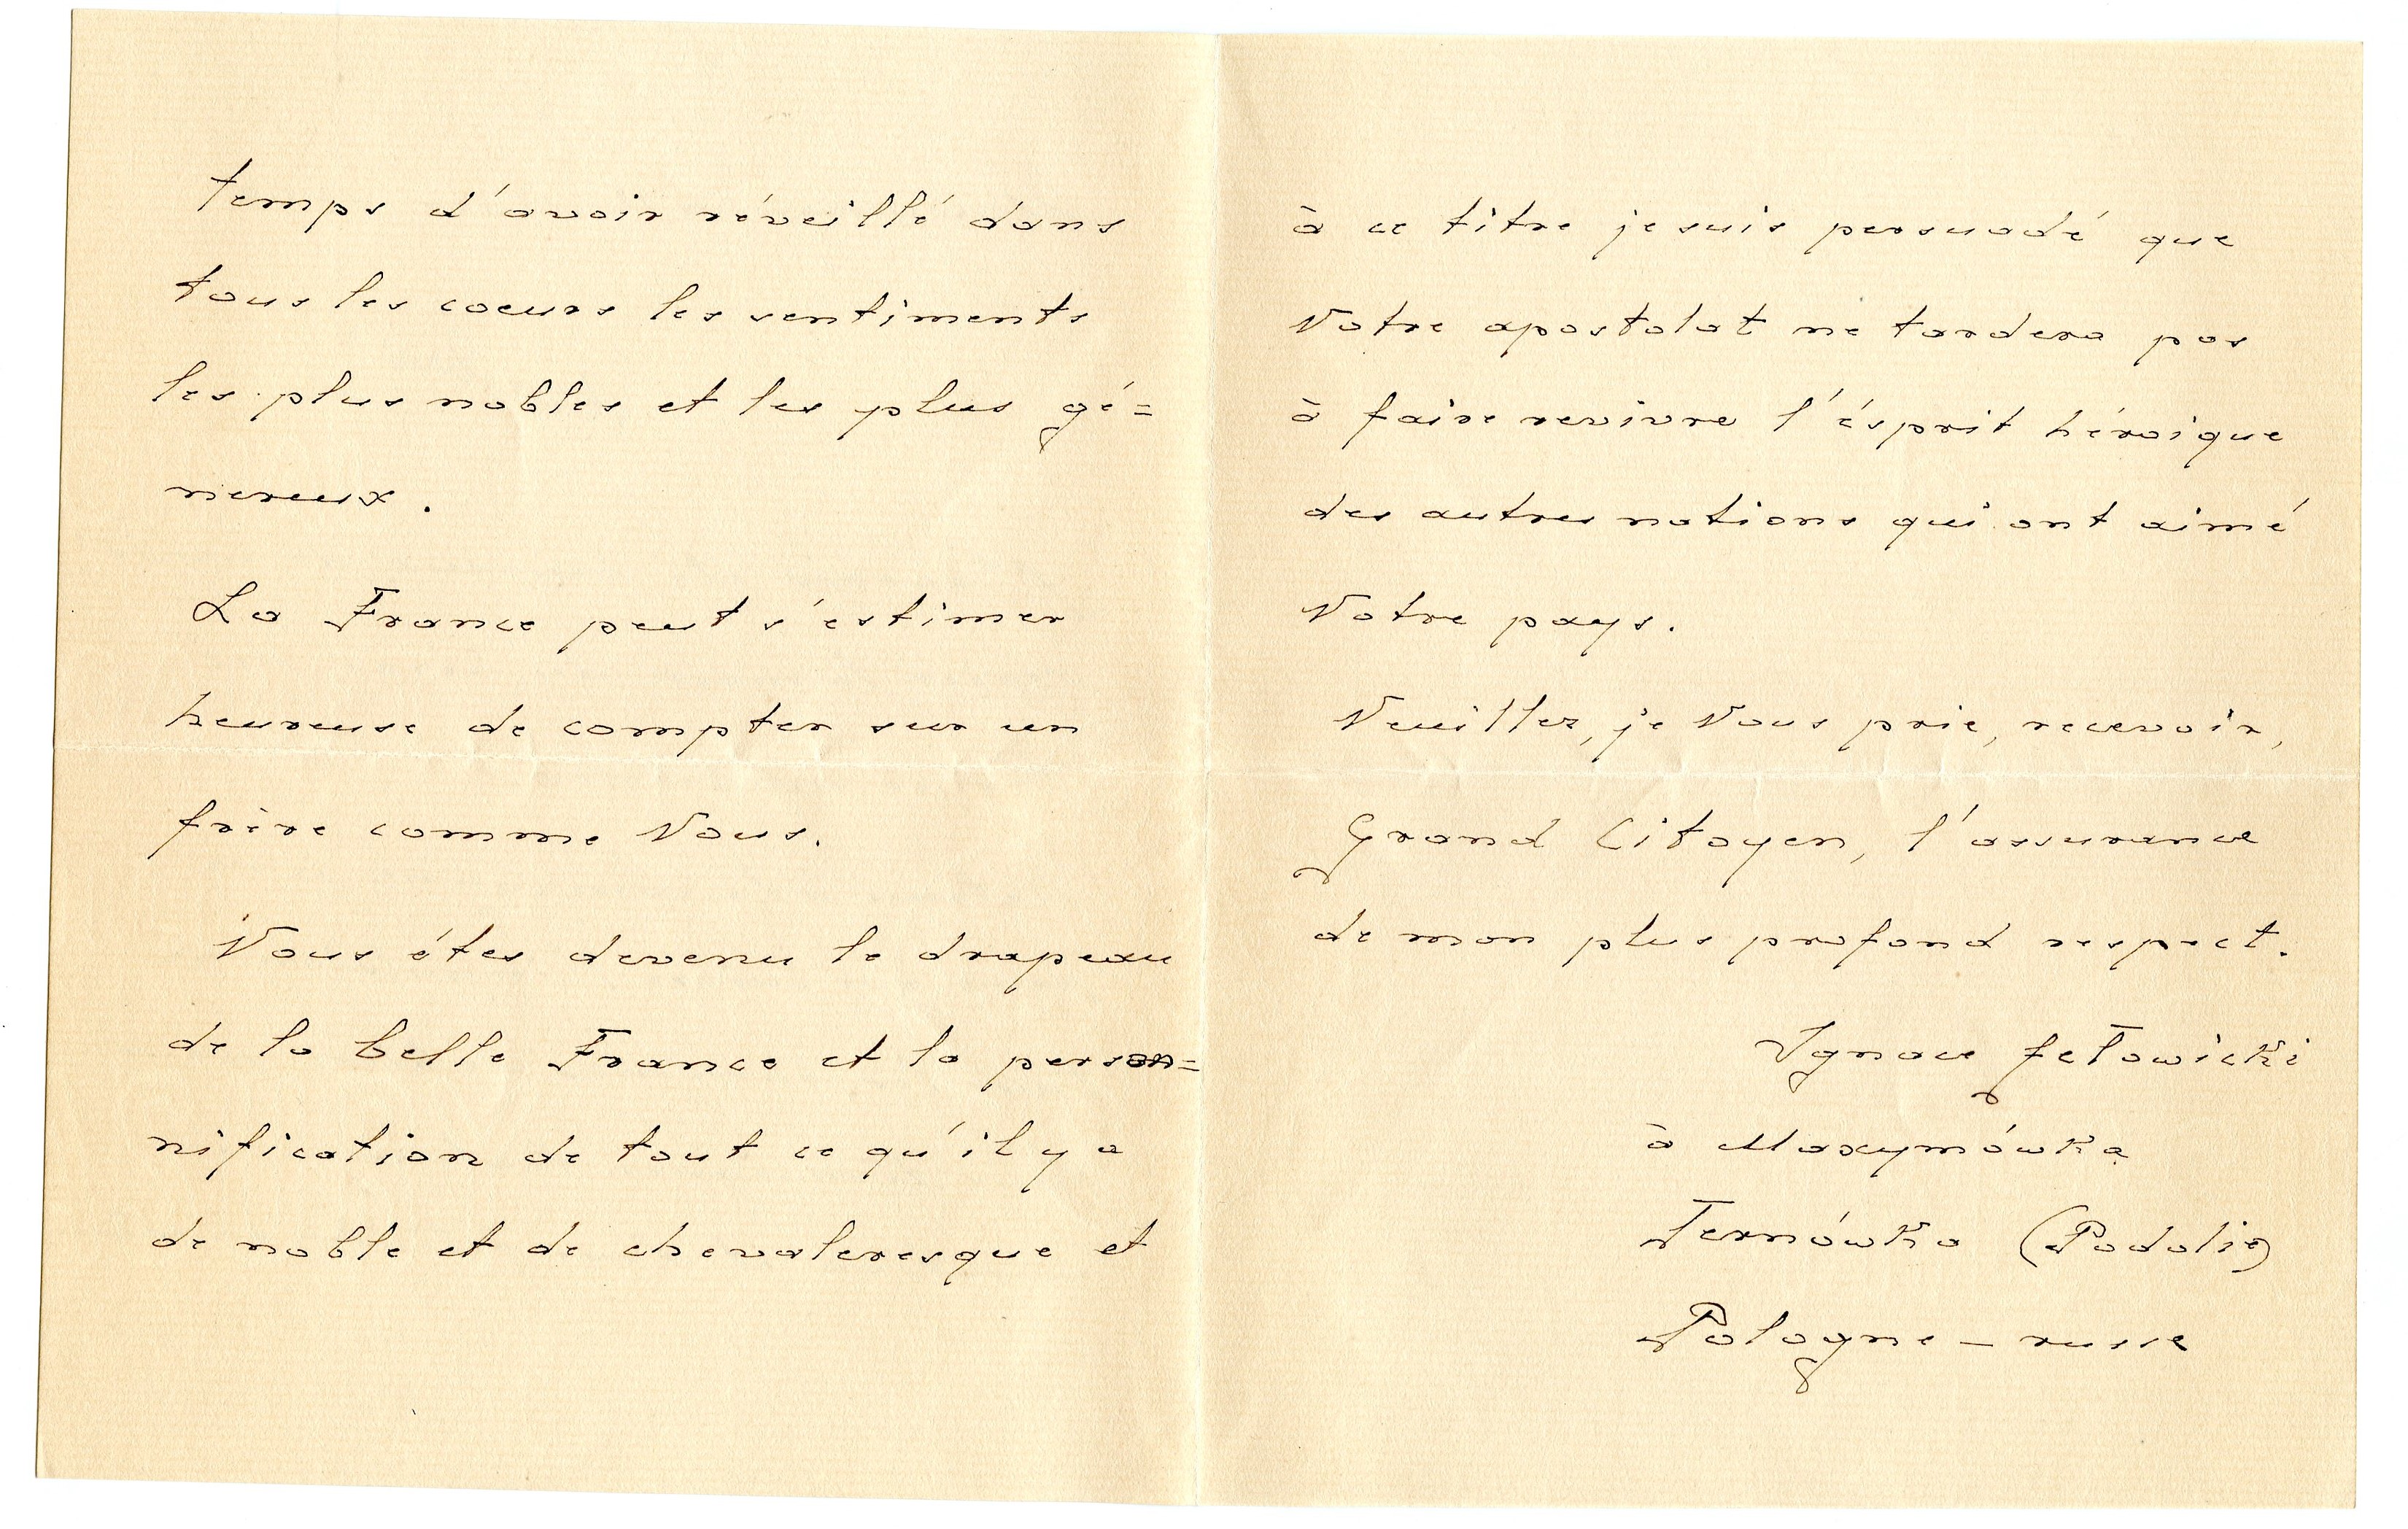 temps d'avoir réveillé dans
tous les coeurs les sentiments
les plus nobles et les plus gé=
nereux.
La France peut s'estimer
heureuse de compter sur un
frère comme Vous.
Vous étes devenu le drapeau
de la belle France et la person=
nification de tout ce qu'il y a
de noble et de chevaleresque et
à ce titre je suis persuadé que
Votre apostolat ne tardera pas
à faire revivre l'ésprit héroique
des autres nations qui ont aimé
Votre pays.
Veuillez, je Vous prie, recevoir,
Grand Citoyen, l'assurance
de mon plus profond respect.
Ygnace Jełowicki
à Maxymówka
Ternówka (Podolie)
Pologne - russe